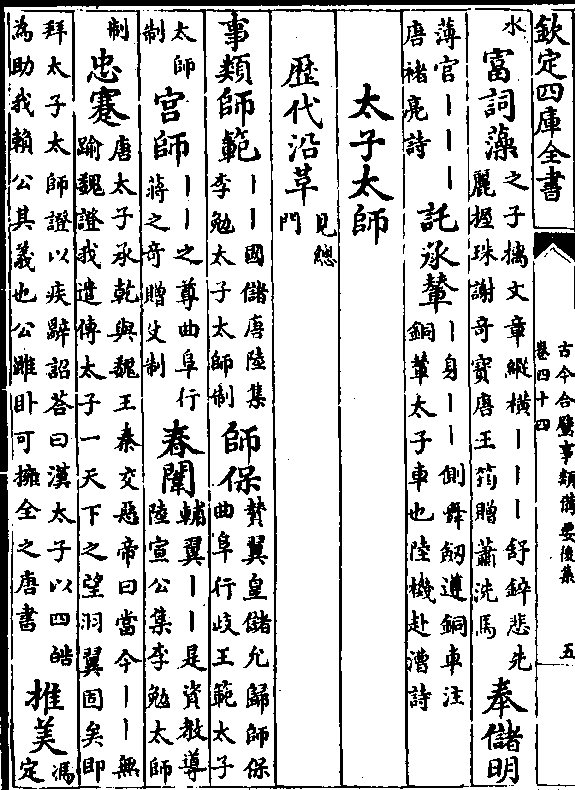 欽定四庫全書
古今合璧事類備要後集
卷四十四
五
水 富詞藻 之子摛文章縱橫｜｜｜舒錦悲先麗握珠謝奇寶唐王筠贈蕭洗馬 奉儲明
薄官｜｜｜唐褚亮詩 託承輦 ｜身｜｜側舞劒遵銅車注銅輦太子車也陸機赴漕詩
太子太師
歴代沿革 見總門
事類師範 ｜｜國儲唐陸集李勉太子太師制 師保 贊翼皇儲允歸師保曲阜行岐王範太子
太師制 宫師 ｜｜之尊曲阜行蔣之奇贈史制 春闈 輔翼｜｜是資教導陸宣公集李勉太師
制 忠蹇 唐太子承乾與魏王泰交惡帝曰當今｜｜無踰魏證我遣傅太子一天下之望羽翼固矣即
拜太子太師證以疾辭詔荅曰漢太子以四皓為助我賴公其義也公雖卧可擁全之唐書 推美 馮定